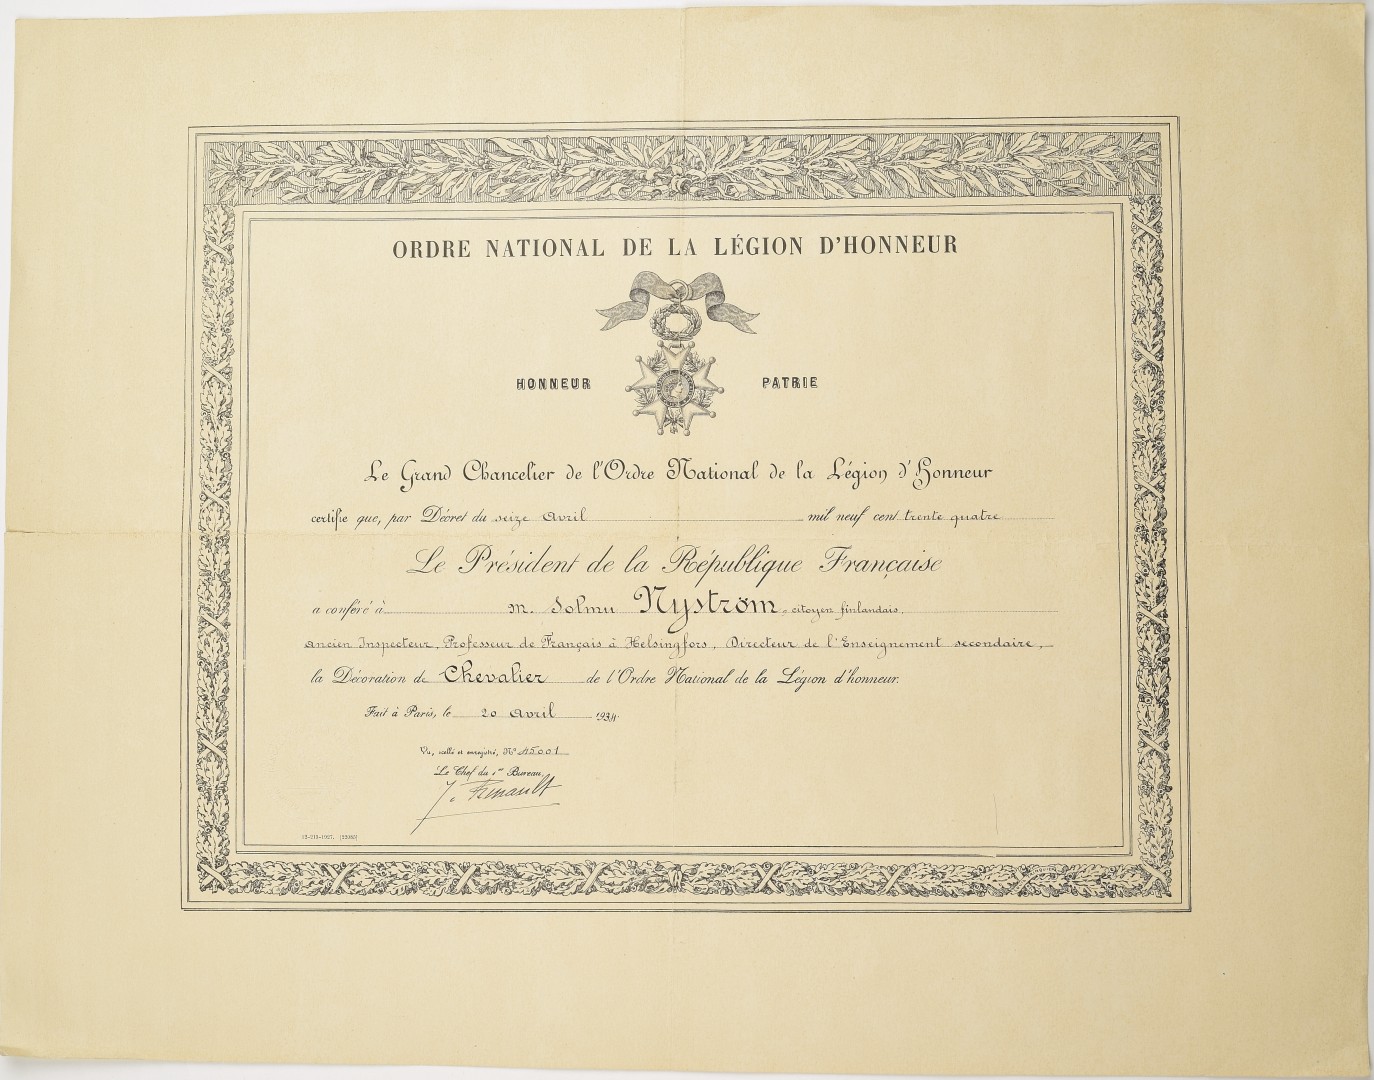 ORDRE NATIONAL DE LA LÉGION D'HONNEUR
HONNEUR PATRIE
Le Grand Chancelier de l'Ordre National de la Légion d'Honneur
certifie que, par Décret du seize Avril mil neuf cent trente quatre
Le Président de la République Française
a conféré à M. Solmu Nyström, citoyen finlandais,
ancien Inspecteur, Professeur de Français à Helsingfors, Directeur de l'Enseignement secondaire,
la Décoration de Chevalier de l'Ordre National de la Légion d'honneur.
Fait à Paris, le 20 Avril 1934.
Vu, scellé et enregistré, N° 45001
Le Chef du 1er Bureau,